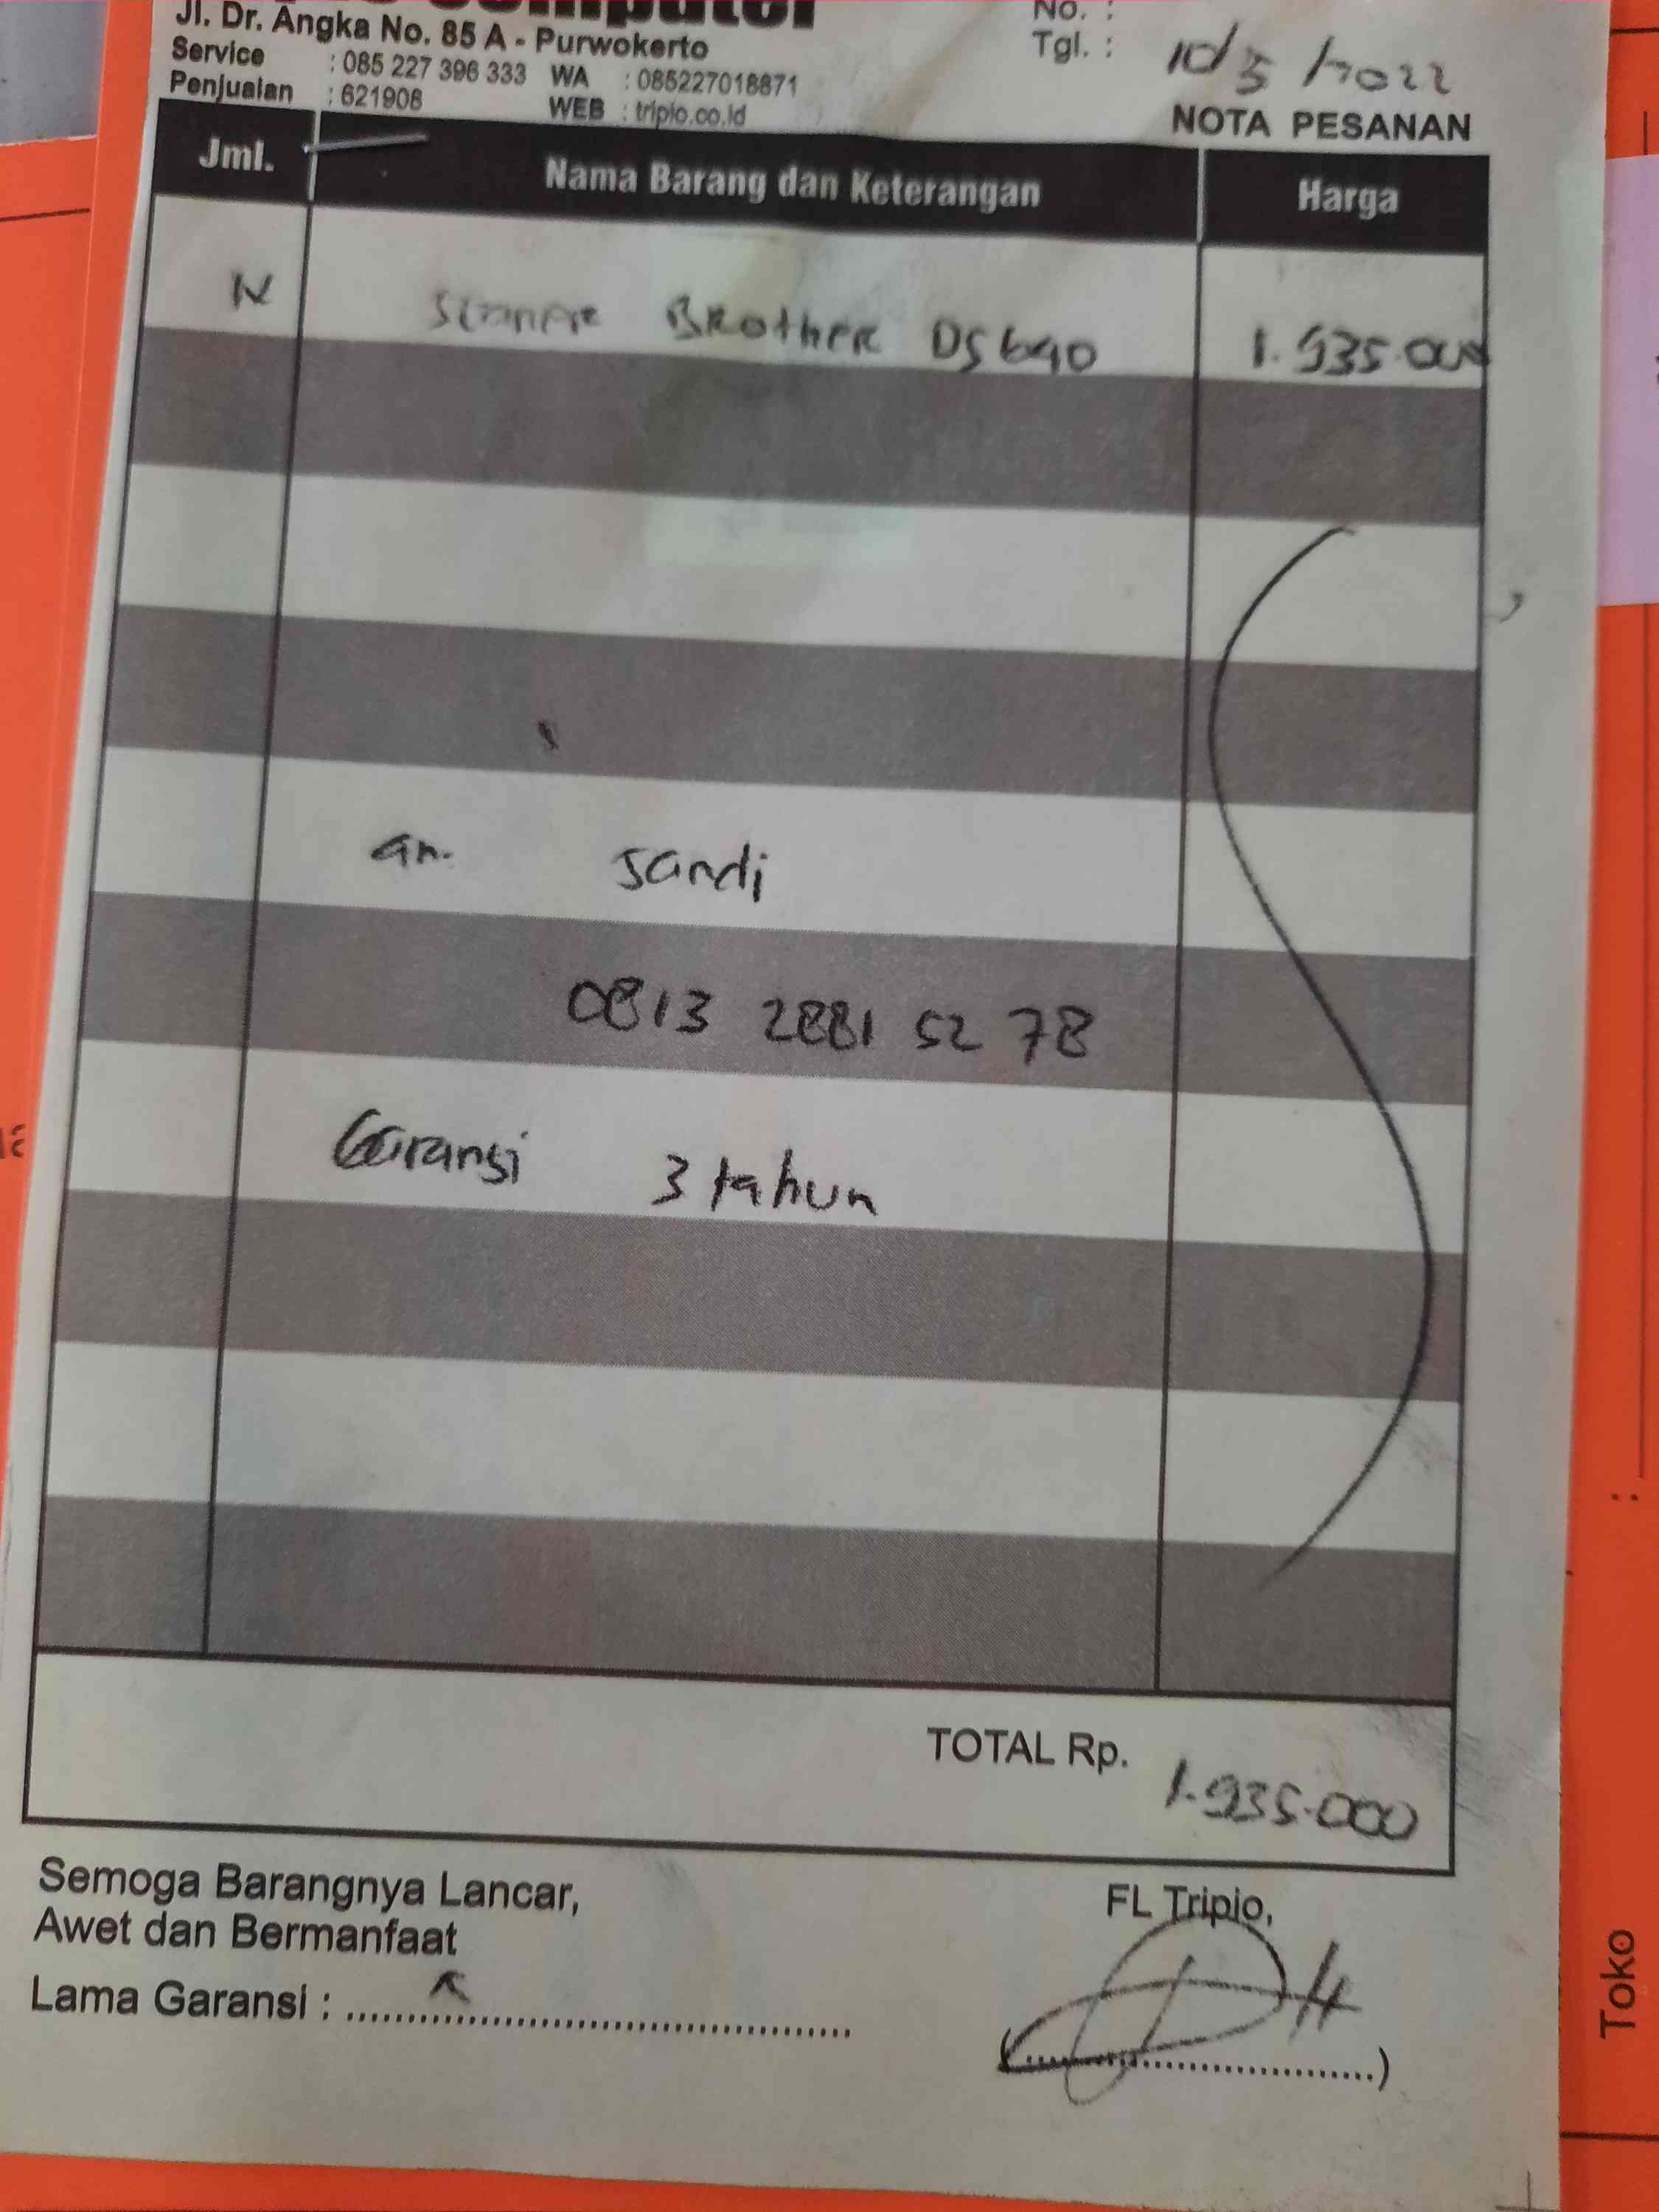 Computer
Jl. Dr. Angka No. 85 A - Purwokerto
Service : 085 227 396 333 WA : 085227018871
Penjualan : 621908 WEB : tripio.co.id
No. :
Tgl. : 10/5/2022
NOTA PESANAN
Jml. Nama Barang dan Keterangan Harga
Scanner Brother DS640 1.935.000
an. Sandi
0813 2881 52 78
Garansi 3 tahun
TOTAL Rp. 1.935.000
Semoga Barangnya Lancar,
Awet dan Bermanfaat
Lama Garansi :
FL Tripio,
Toko
: